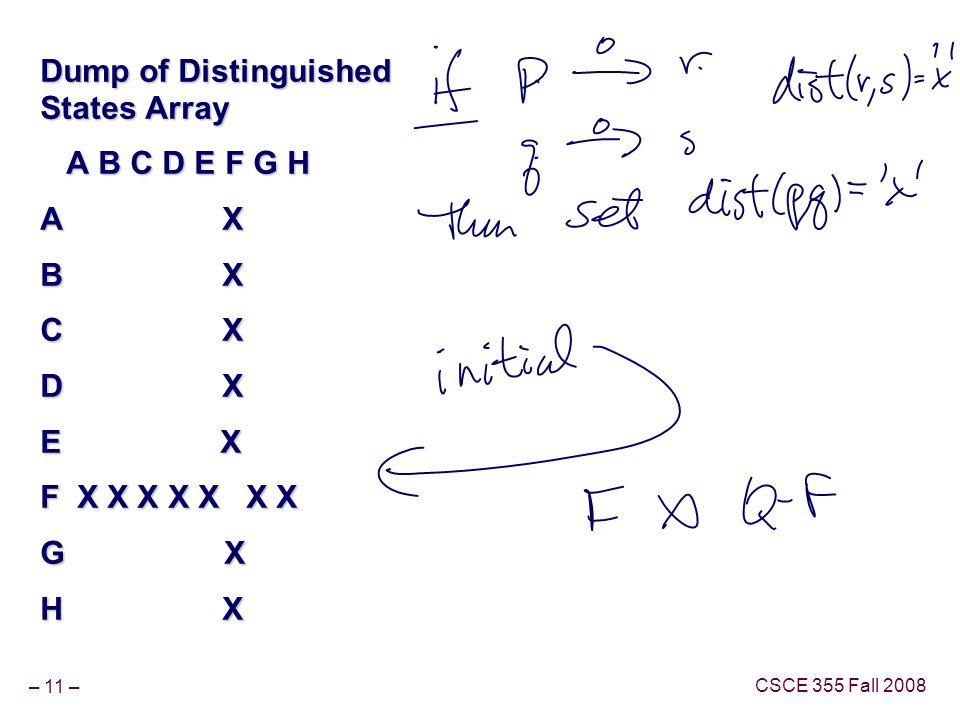 Dump of Distinguished
States Array
A B C D E F G H
A X
B X
C X
D X
E X
F X X X X X X X
G X
H X
if p 0→ r. dist(r,s)="x"
q 0→ s
then set dist(pq)='x'
initial
F X Q-F
– 11 –
CSCE 355 Fall 2008